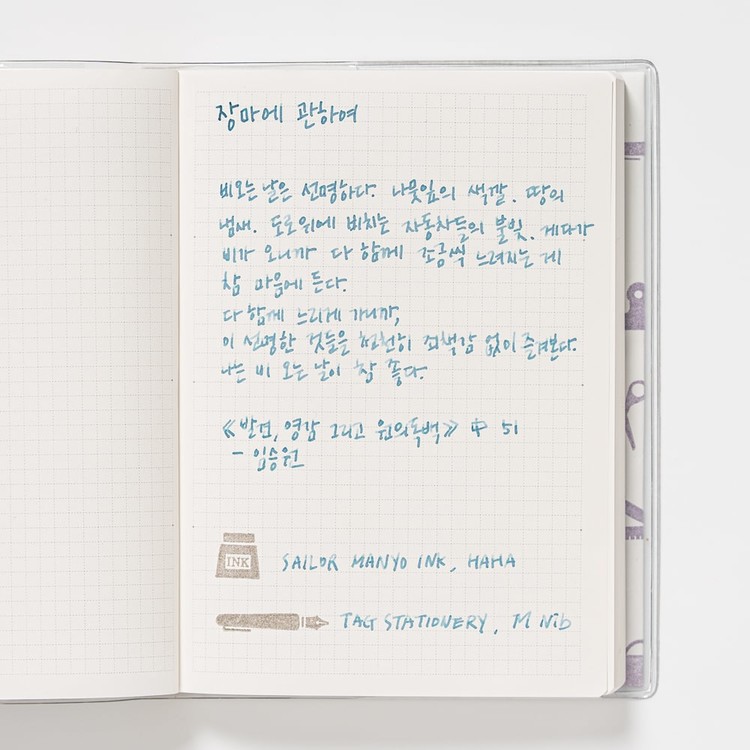 장마에 관하여
비오는 날은 선명하다. 나뭇잎의 색깔. 땅의
냄새. 도로위에 비치는 자동차들의 불빛. 게다가
비가 오니까 다 함께 조금씩 느려지는 게
참 마음에 든다.
다 함께 느리게 가니까,
이 선명한 것들을 천천히 죄책감 없이 즐겨본다.
나는 비 오는 날이 참 좋다.
《발견, 영감 그리고 원의독백》 中 51
- 임승원
INK
SAILOR MANYO INK, HAHA
TAG STATIONERY, M Nib